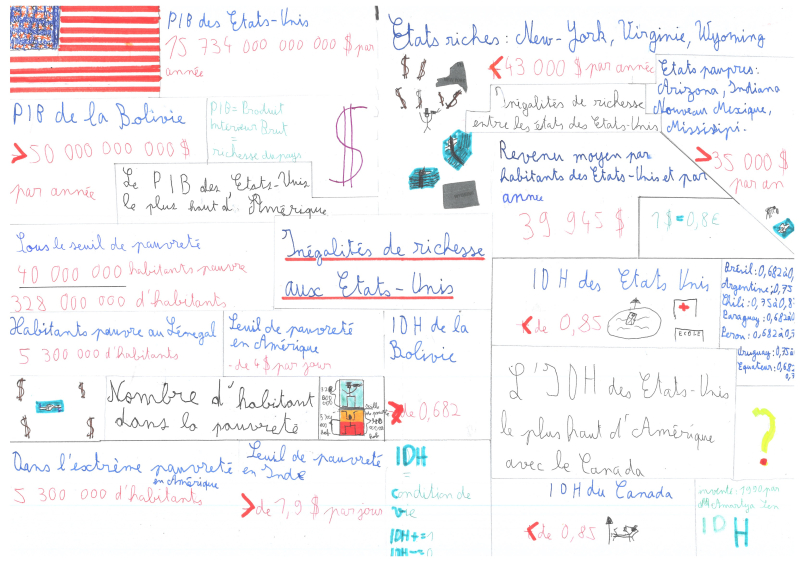 PIB des Etats-Unis
15 734 000 000 000 $ par
année
PIB de la Bolivie
>50 000 000 000 $
par année
PIB = Produit
Interieur Brut
=
richesse du pays
$
Le PIB des Etats-Unis
le plus haut d'Amérique
Etats riches : New-York, Virginie, Wyoming
<43 000 $ par année
$ $
$ $ $
Inégalités de richesse
entre les états des Etats-Unis
Etats pauvres :
Arizona, Indiana
Nouveau Mexique,
Mississipi.
>35 000 $
par an
Revenu moyen par
habitants des Etats-Unis et par
annee
39 945 $
1 $ = 0,8€
Sous le seuil de pauvreté
40 000 000 habitants pauvre
328 000 000 d'habitants
Inégalités de richesse
aux Etats-Unis
Habitants pauvre au Sénégal
5 300 000 d'habitants
Seuil de pauvreté
en Amérique
- de 4 $ par jour
IDH de la
Bolivie
de 0,682
$ $
$ $
Nombre d'habitant
dans la pauvreté
Dans l'extrême pauvreté
en Amérique
5 300 000 d'habitants
Seuil de pauvreté
en Inde
>de 1,9 $ par jours
IDH
=
condition de
vie
IDH+=1
IDH-=0
IDH des Etats Unis
<de 0,85
ECOLE
Brésil : 0,682 à 0,
Argentine : 0,75
Chili : 0,75 à 0,8
Paraguay : 0,682 à 0
Perou : 0,682 à 0,7
Uruguay : 0,75 à
Equateur : 0,68
0,7
L'IDH des Etats-Unis
le plus haut d'Amérique
avec le Canada
?
IDH du Canada
<de 0,85
invente : 1990 par
Amartya Sen
IDH